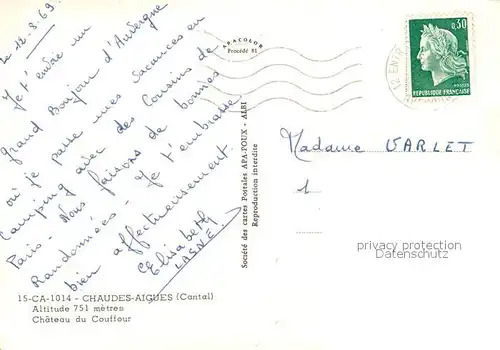 le 12.8.69.
Je t'envoie un
grand Bonjour d'Auvergne
où je passe mes vacances en
Camping avec des Cousins de
Paris - Nous faisons de bonnes
Randonnées - Je t'embrasse
bien affectueusement.
Elisabeth
LASNE.
15-CA-1014 - CHAUDES-AIGUES (Cantal)
Altitude 751 mètres
Château du Couffour
APACOLOR
Procédé 81
Société des cartes Postales APA-POUX - ALBI
Reproduction interdite
0,30
REPUBLIQUE FRANÇAISE
POSTES
Madame VARLET
privacy protection
Datenschutz